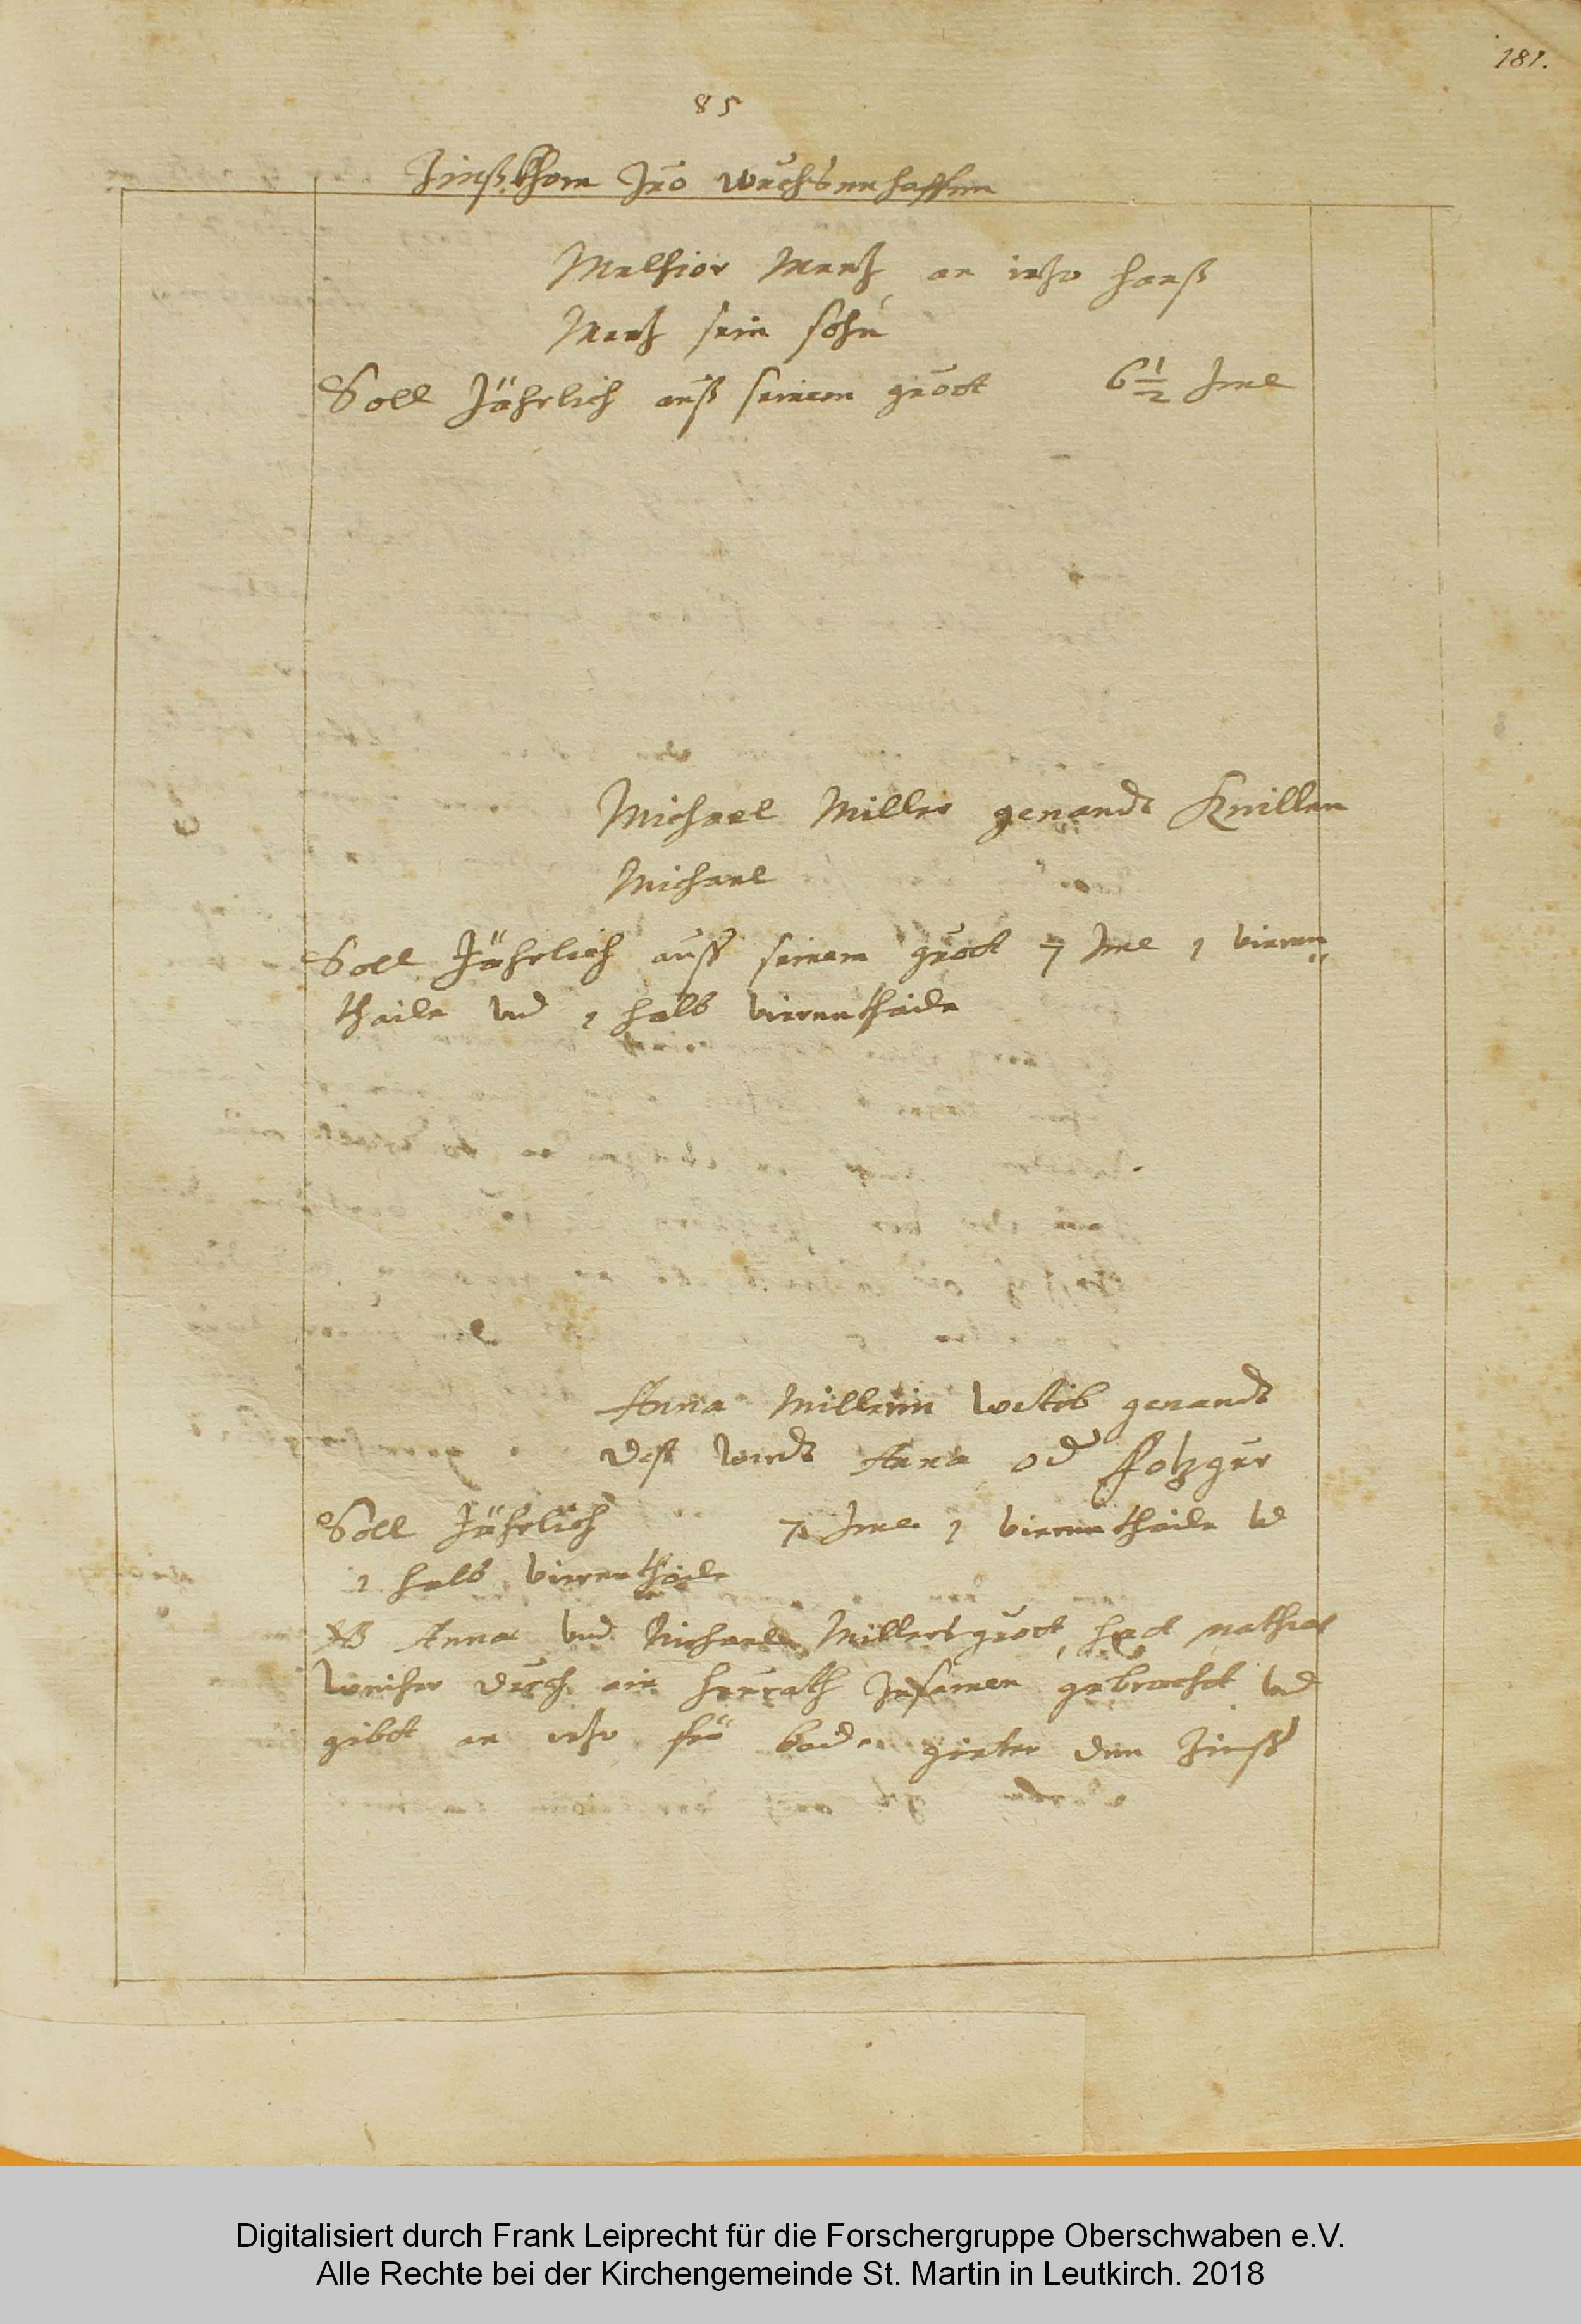 181.
85
Zinß Khorn Zuo Wuchzenhoffen
Melchior Mertz an iezo hanß
Mertz sein sohn
Soll Jährlich auß seinem guoth 6 1/2 Ime
Michael Miller genandt Knillen
Michael
Soll Jährlich auß seinem guoth 7 Ime 1 vieren
thaile und 1 halb vierenthaile
Anna Millerin Witib genandt
deß Anna od
Soll Jährlich 7 Ime 1 vierenthaile vnd
1 halb vierenthaile
NB Anna vnd Michael Millers guoth hat mathias
Weiher durch ein heurath Zusamen gebracht vnd
gibt an iezo für baide gieter den Zinß
Digitalisiert durch Frank Leiprecht für die Forschergruppe Oberschwaben e.V.
Alle Rechte bei der Kirchengemeinde St. Martin in Leutkirch. 2018